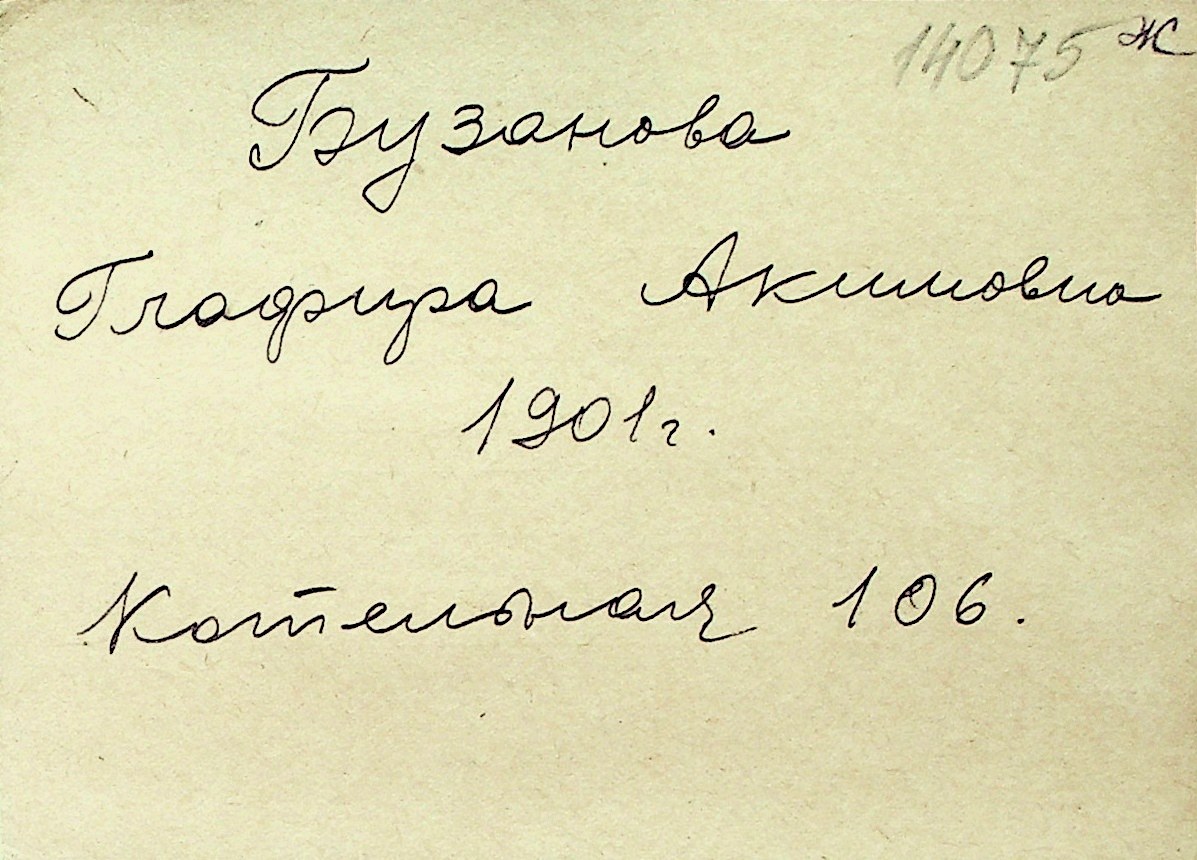 14075 ж
Бузанова
Глафира Акимовна
1901г.
Котельная 106.